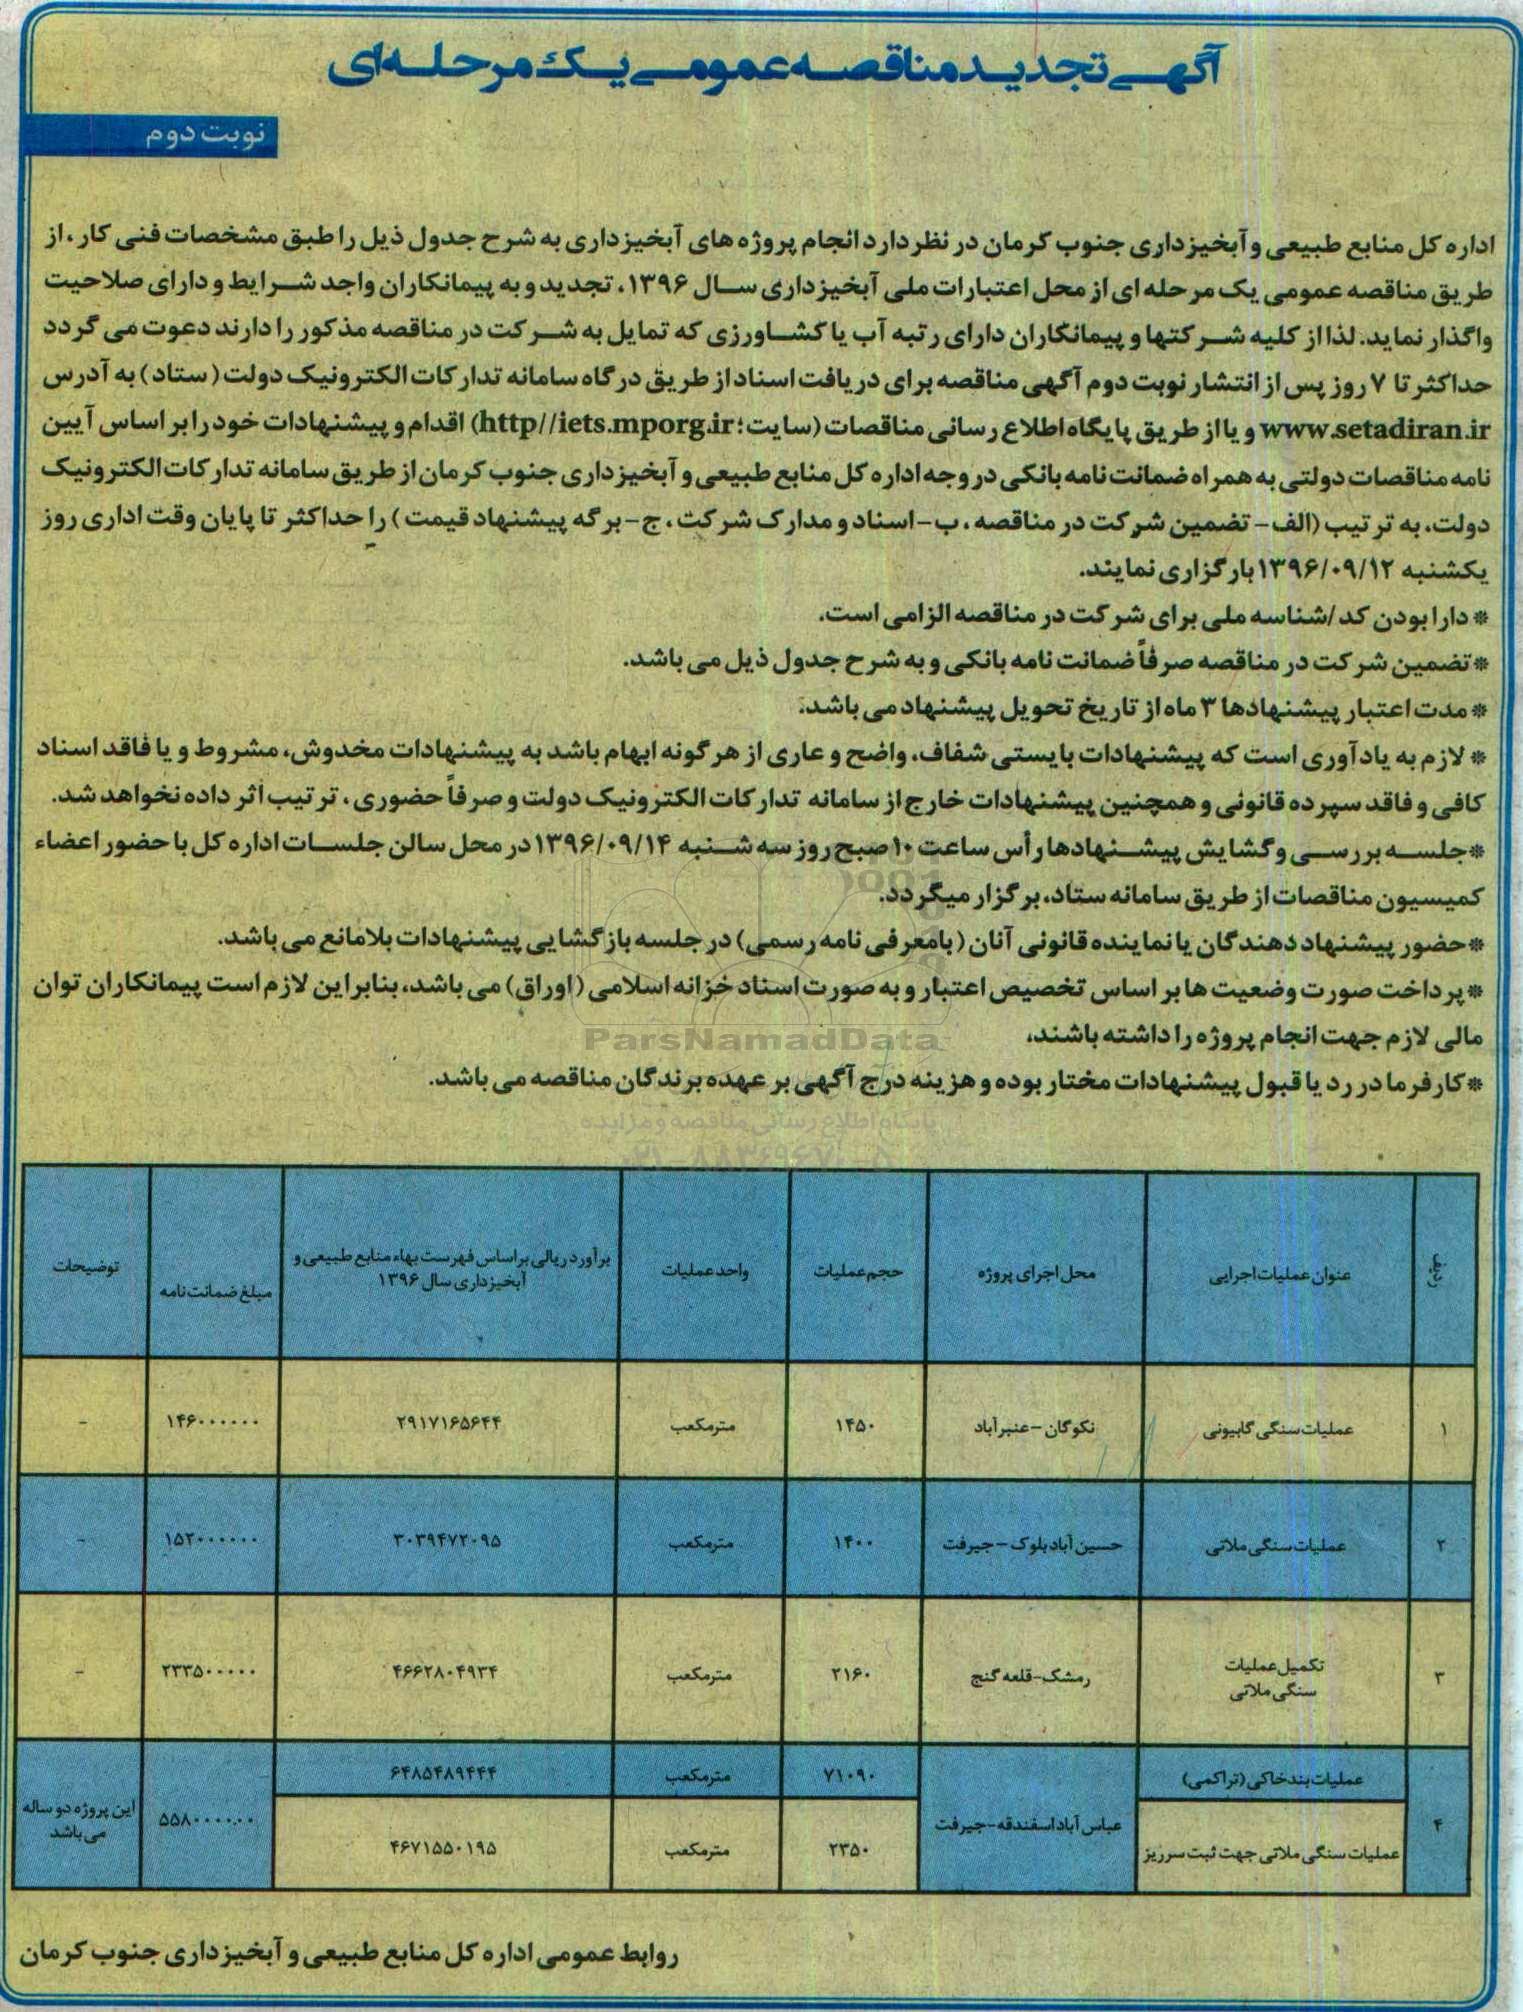 آگهی تجدید مناقصه عمومی یک مرحله‌ای
نوبت دوم
اداره کل منابع طبیعی و آبخیزداری جنوب کرمان در نظر دارد انجام پروژه های آبخیزداری به شرح جدول ذیل را طبق مشخصات فنی کار، از
طریق مناقصه عمومی یک مرحله ای از محل اعتبارات ملی آبخیزداری سال ۱۳۹۶، تجدید و به پیمانکاران واجد شرایط و دارای صلاحیت
واگذار نماید. لذا از کلیه شرکتها و پیمانکاران دارای رتبه آب یا کشاورزی که تمایل به شرکت در مناقصه مذکور را دارند دعوت می گردد
حداکثر تا ۷ روز پس از انتشار نوبت دوم آگهی مناقصه برای دریافت اسناد از طریق درگاه سامانه تدارکات الکترونیک دولت (ستاد) به آدرس
www.setadiran.ir و یا از طریق پایگاه اطلاع رسانی مناقصات (سایت؛ http//iets.mporg.ir) اقدام و پیشنهادات خود را بر اساس آیین
نامه مناقصات دولتی به همراه ضمانت نامه بانکی در وجه اداره کل منابع طبیعی و آبخیزداری جنوب کرمان از طریق سامانه تدارکات الکترونیک
دولت، به ترتیب (الف- تضمین شرکت در مناقصه، ب- اسناد و مدارک شرکت، ج- برگه پیشنهاد قیمت) را حداکثر تا پایان وقت اداری روز
یکشنبه ۱۳۹۶/۰۹/۱۲ بارگزاری نمایند.
* دارا بودن کد /شناسه ملی برای شرکت در مناقصه الزامی است.
* تضمین شرکت در مناقصه صرفاً ضمانت نامه بانکی و به شرح جدول ذیل می باشد.
* مدت اعتبار پیشنهادها ۳ ماه از تاریخ تحویل پیشنهاد می باشد.
* لازم به یادآوری است که پیشنهادات بایستی شفاف، واضح و عاری از هرگونه ابهام باشد به پیشنهادات مخدوش، مشروط و یا فاقد اسناد
کافی و فاقد سپرده قانونی و همچنین پیشنهادات خارج از سامانه تدارکات الکترونیک دولت و صرفاً حضوری، ترتیب اثر داده نخواهد شد.
* جلسه بررسی و گشایش پیشنهادها رأس ساعت ۱۰ صبح روز سه شنبه ۱۳۹۶/۰۹/۱۴ در محل سالن جلسات اداره کل با حضور اعضاء
کمیسیون مناقصات از طریق سامانه ستاد، برگزار میگردد.
* حضور پیشنهاد دهندگان یا نماینده قانونی آنان (بامعرفی نامه رسمی) در جلسه بازگشایی پیشنهادات بلامانع می باشد.
* پرداخت صورت وضعیت ها بر اساس تخصیص اعتبار و به صورت اسناد خزانه اسلامی (اوراق) می باشد، بنابراین لازم است پیمانکاران توان
مالی لازم جهت انجام پروژه را داشته باشند،
ParsNamadData
* کارفرما در رد یا قبول پیشنهادات مختار بوده و هزینه درج آگهی بر عهده برندگان مناقصه می باشد.
پایگاه اطلاع رسانی مناقصه و مزایده
۰۲۱-۸۸۳۴۹۶۷۰-۵
ردیف عنوان عملیات اجرایی محل اجرای پروژه حجم عملیات واحد عملیات برآورد ریالی براساس فهرست بهاء منابع طبیعی و آبخیزداری سال ۱۳۹۶ مبلغ ضمانت نامه توضیحات
۱ عملیات سنگی گابیونی نکوگان - عنبرآباد ۱۴۵۰ مترمکعب ۲۹۱۷۱۶۵۶۴۴ ۱۴۶۰۰۰۰۰۰ -
۲ عملیات سنگی ملاتی حسین آباد بلوک - جیرفت ۱۴۰۰ مترمکعب ۳۰۳۹۴۷۲۰۹۵ ۱۵۲۰۰۰۰۰۰ -
۳ تکمیل عملیات سنگی ملاتی رمشک-قلعه گنج ۲۱۶۰ مترمکعب ۴۶۶۲۸۰۴۹۳۴ ۲۳۳۵۰۰۰۰۰ -
۴ عملیات بندخاکی (تراکمی) عباس آباد اسفندقه-جیرفت ۷۱۰۹۰ مترمکعب ۶۴۸۵۴۸۹۴۴۴ ۵۵۸۰۰۰۰۰۰ این پروژه دو ساله می باشد
عملیات سنگی ملاتی جهت ثبت سرریز ۲۳۵۰ مترمکعب ۴۶۷۱۵۵۰۱۹۵
روابط عمومی اداره کل منابع طبیعی و آبخیزداری جنوب کرمان